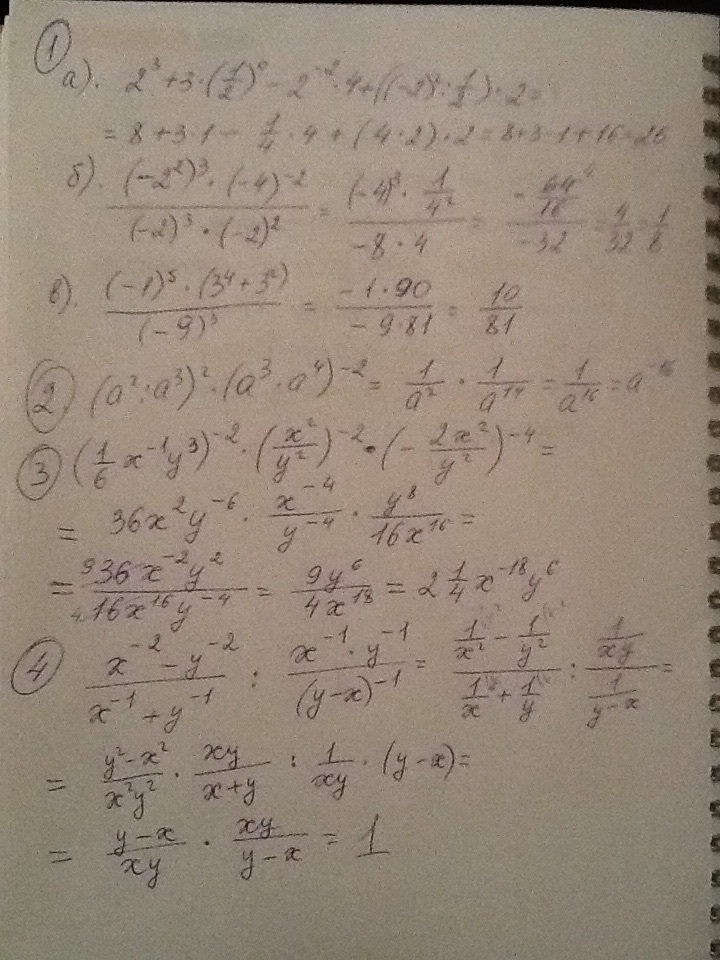 ①
а). 2³ + 3·(1/2)⁰ − 2⁻²·4 + ((−2)²:1/2)·2 =
= 8 + 3·1 − 1/4·4 + (4·2)·2 = 8+3−1+16=26
б). ((−2²)³·(−4)⁻²)/((−2)³·(−2)²) = ((−4)³·1/4²)/(−8·4) = (−64/16)/(−32) = 4/32 = 1/8
в). ((−1)⁵·(3⁴+3²))/((−9)³) = (−1·90)/(−9·81) = 10/81
② (a²:a³)²·(a³·a⁴)⁻² = 1/a²·1/a¹⁴ = 1/a¹⁶ = a⁻¹⁶
③ (1/6 x⁻¹y³)⁻²·(x²/y²)⁻²·(−2x²/y²)⁻⁴ =
= 36x²y⁻⁶·x⁻⁴/y⁻⁴·y⁸/16x¹⁶ =
= 9 36x⁻²y²/4 16x¹⁶y⁻⁴ = 9y⁶/4x¹⁸ = 2 1/4 x⁻¹⁸y⁶
④ (x⁻²−y⁻²)/(x⁻¹+y⁻¹) : (x⁻¹·y⁻¹)/(y−x)⁻¹ = (1/x²−1/y²)/(1/x+1/y) : (1/xy)/(1/(y−x)) =
= (y²−x²)/x²y²·xy/(x+y) : 1/xy·(y−x) =
= (y−x)/xy·xy/(y−x) = 1